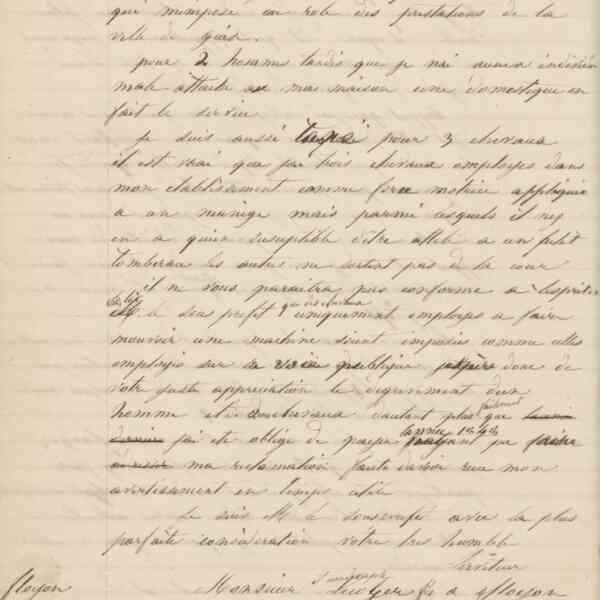 qui m'impose au role des prestations de la
ville de
pour 2 hommes tandis que je n'ai aucun individu
male attaché a ma maison une domestique en
fait le service
Je suis aussi taxé pour 3 chevaux
il est vrai que j'ai trois chevaux employes dans
mon etablissement comme force motrice appliquée
a un manege mais parmi lesquels il n'y
en a qu'un suseptible d'etre attelé a un petit
tombereau les autres ne sortent pas de la cour
il ne vous paraitra pas conforme a l'esprit
de la loi
M. le sous prefet que ces chevaux uniquement employes a faire
mouvoir une machine soient imposés comme celles
employés sur la voie publique j'espère donc de
votre juste appreciation le degrevement d'un
homme et de deux chevaux d'autant plus que
j'ai eté obligé de payer année 1848 faire
ma reclamation faute d'avoir reçu mon
avertissement en temps utile
Je suis M. le souspréfet avec la plus
parfaite consideration votre tres humble
serviteur
Monsieur a